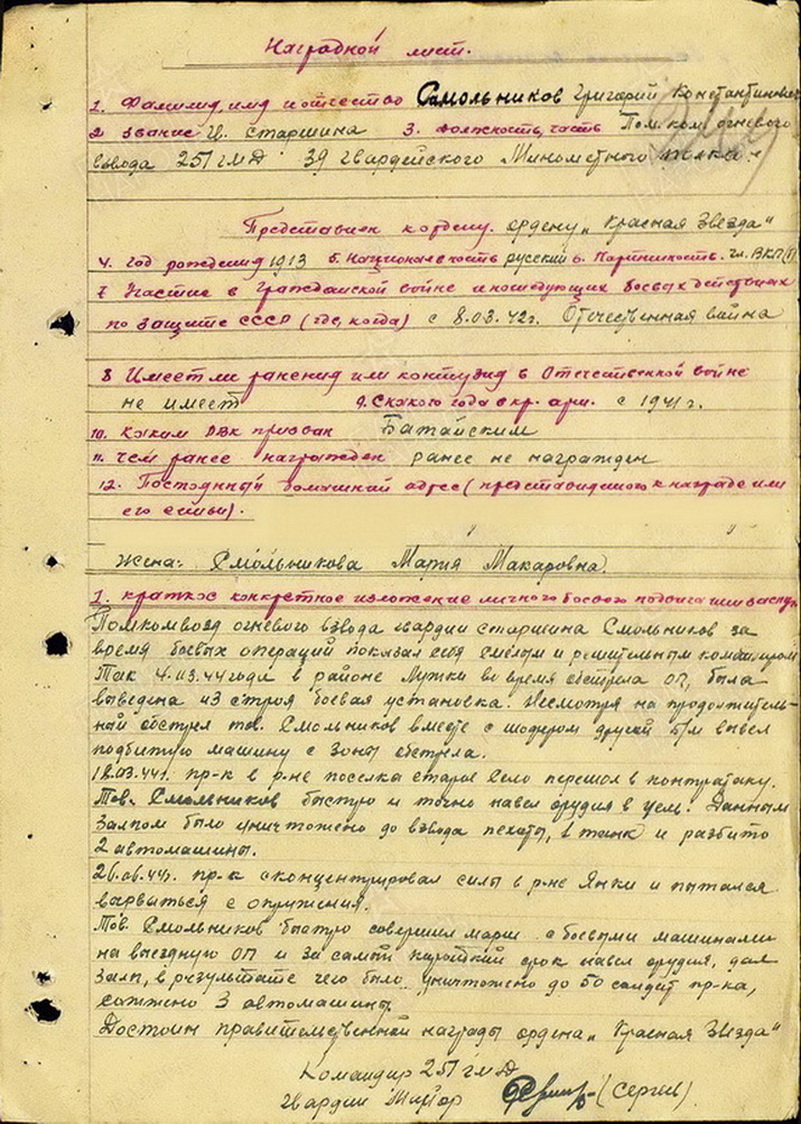 Наградной лист.
1. Фамилия, имя и отчество Смольников Григорий Константинович
2 звание Гв. старшина 3. должность, часть Пом. ком. огневого
взвода 251 гмд 39 гвардейского Минометного полка.
Представлен к ордену. ордену „Красная Звезда"
4. год рождения 1913 5. Национальность русский 6. Партийность. чл. ВКП(б)
7 Участие в гражданской войне и последующих боевых действиях
по защите СССР (где, когда) с 8.03.42г. Отечественная война
8 Имеет ли ранения или контузия в Отечественной войне
не имеет 9. С какого года в кр. арм. с 1941 г.
10. Каким РВК призван Батайским
11. Чем ранее награжден ранее не награжден
12. Постоянный домашний адрес (представляемого к награде или
его семьи).
Жена: Смольникова Мария Макаровна.
1. краткое конкретное изложение личного боевого подвига или заслуг
Помкомвзвод огневого взвода гвардии старшина Смольников за
время боевых операций показал себя смелым и решительным командиром
Так 4.03.44 года в районе Лужки во время обстрела ОП, была
выведена из строя боевая установка. Несмотря на продолжитель-
ный обстрел тов. Смольников вместе с шофером другой б/м вывел
подбитую машину с зоны обстрела.
18.03.44г. пр-к в р-не поселка старое Село перешол в контратаку.
Тов. Смольников быстро и точно навел орудия в цель. Данным
залпом было уничтожено до взвода пехоты, 1 танк и разбито
2 автомашины.
26.06.44г. пр-к сконцентрировал силы в р-не Янки и пытался
вырваться с окружения.
Тов. Смольников быстро совершил марш с боевыми машинами
на выездную ОП и за самый короткий срок навел орудия, дал
залп, в результате чего было уничтожено до 50 солдат пр-ка,
сожжено 3 автомашины.
Достоин правительственной награды ордена „Красная Звезда"
Командир 251 гмд
гвардии Майор (Сергеев)